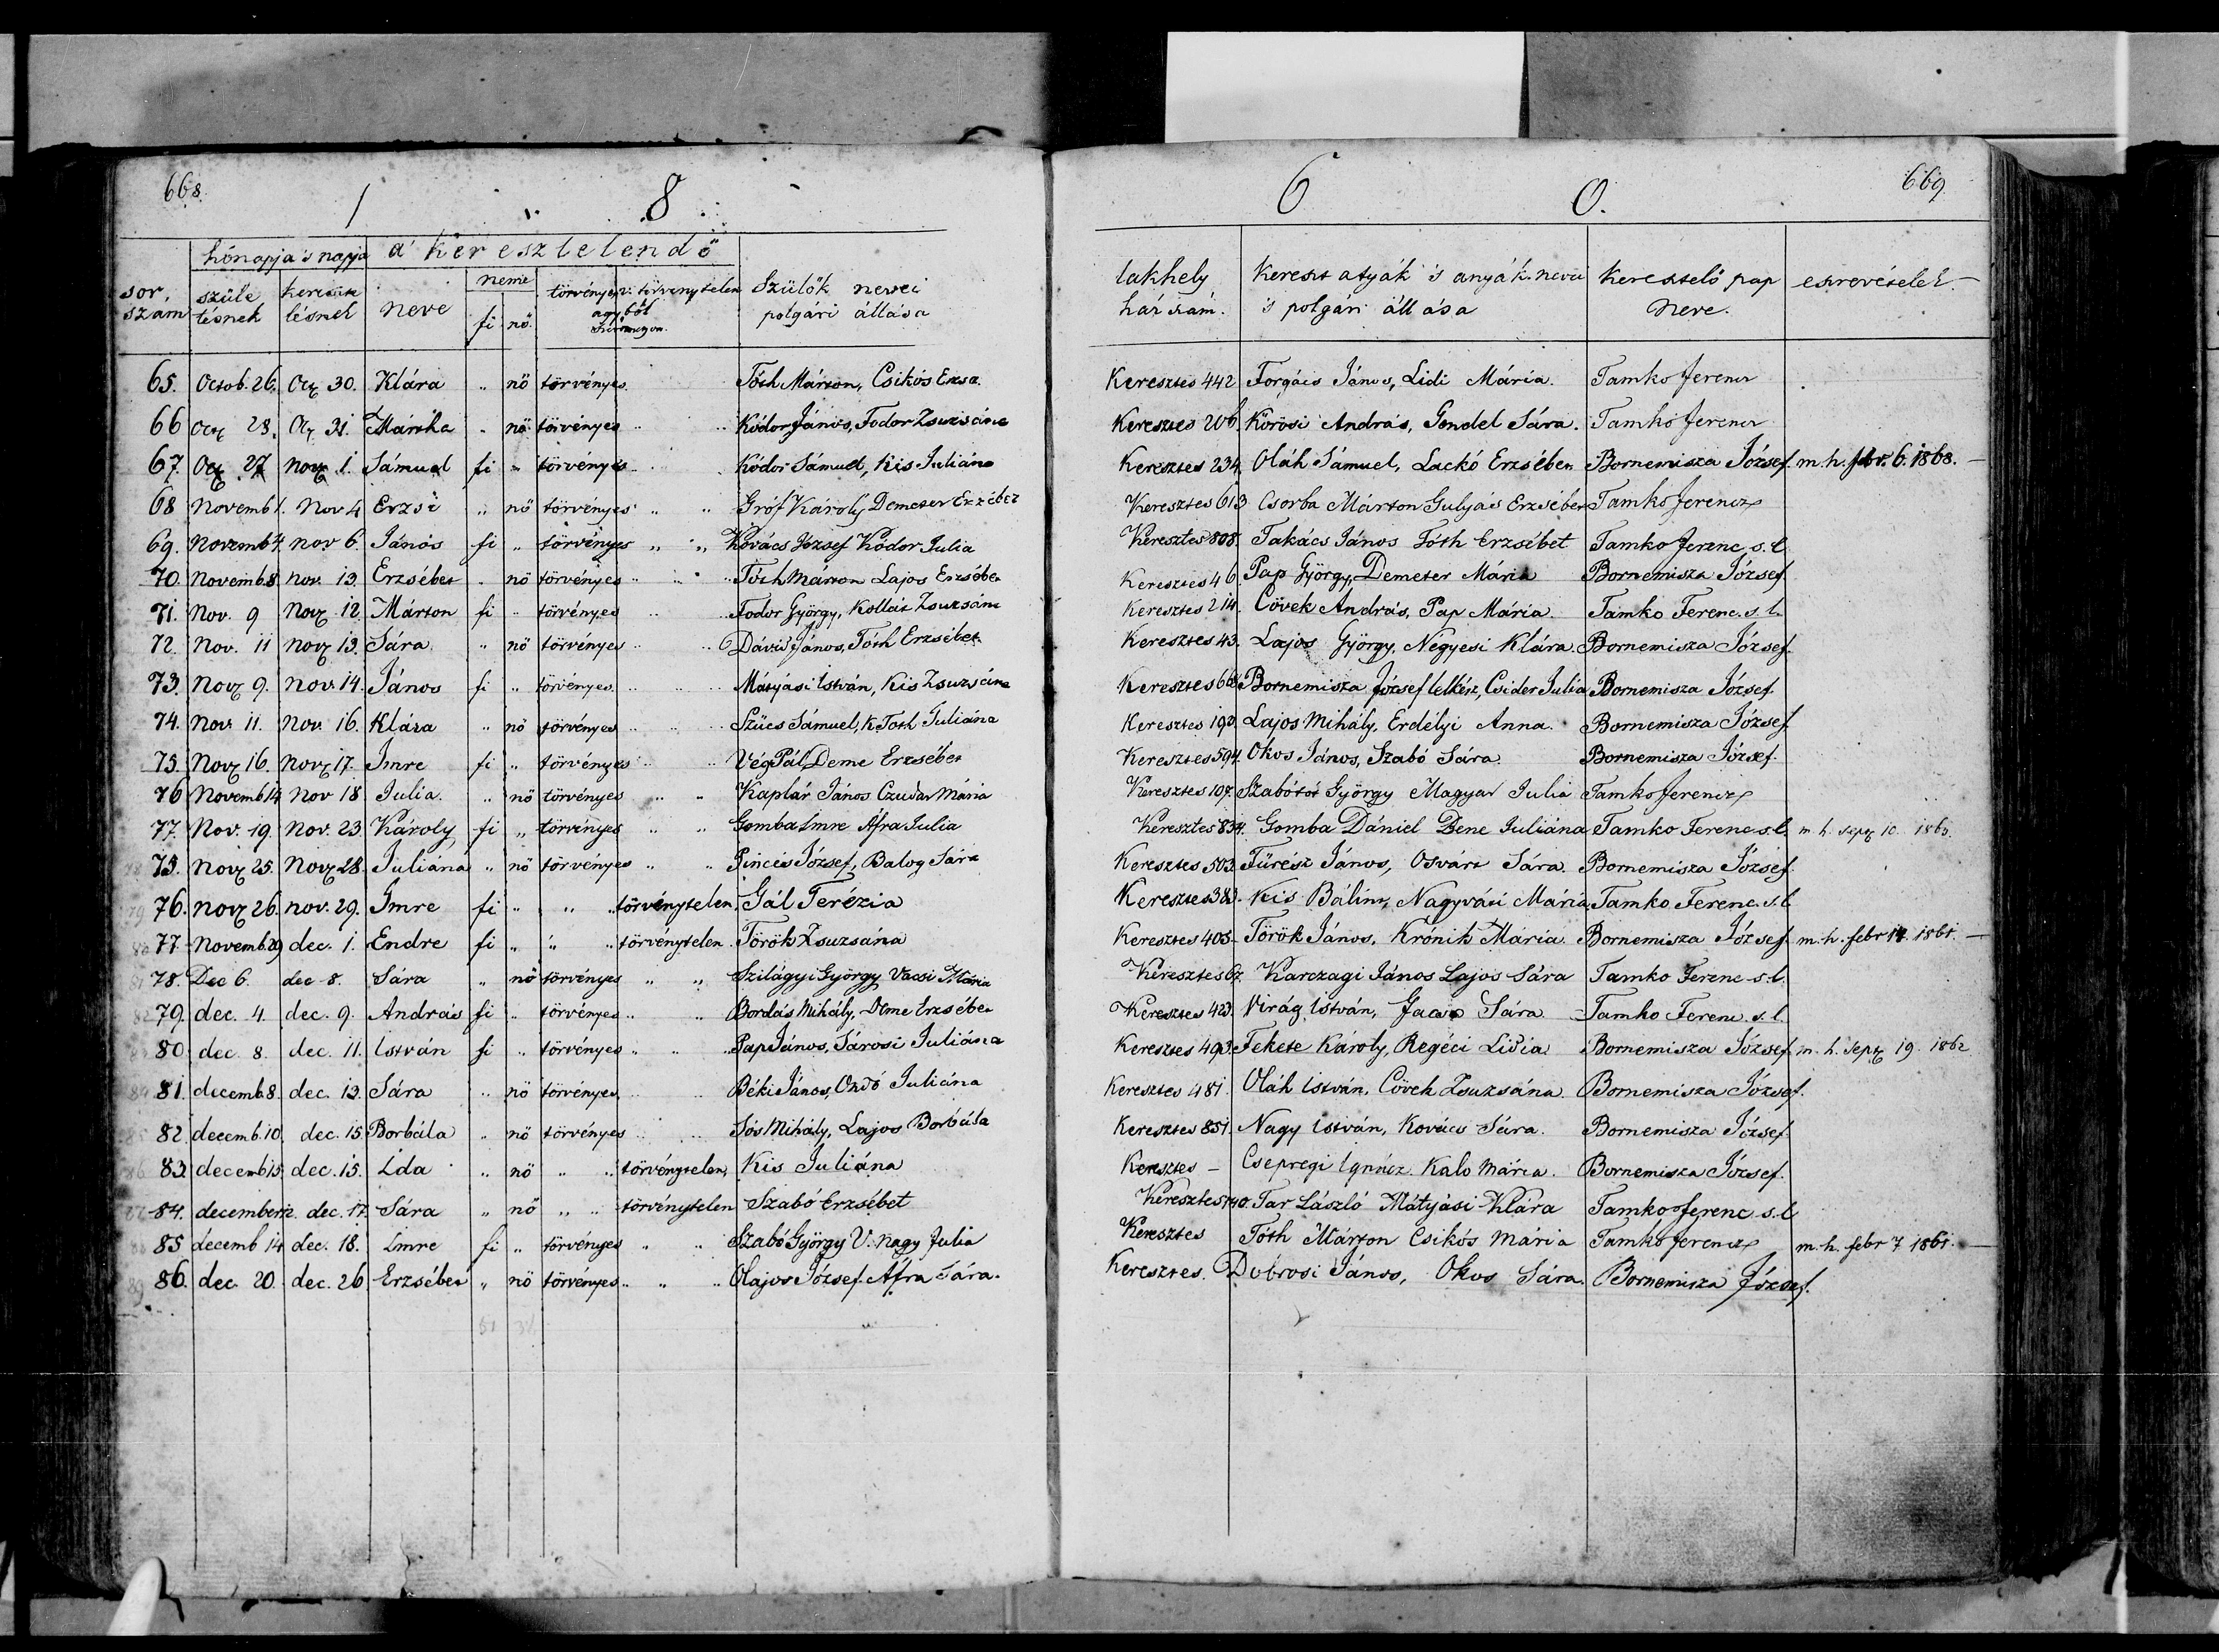 668.
1 8
6 0.
669
hónapja 's napja a' keresztelendő
sor. szám születésnek keresztelésnek neve neme fi nő. törvényes v. törvénytelen ágyból Szülők nevei polgári állása lakhely házszám. Kereszt atyák 's anyák nevei 's polgári állása Keresztelő pap neve. eszrevételek.
65. Octob. 26. Oct 30. Klára " nő törvényes Tóth Márton, Csikós Erzsa. Keresztes 442 Forgács János, Lidi Mária. Tamko Ferencz
66 Oct 28. Oct 31. Mártha " nő törvényes Kódor János, Fodor Zsuzsána Keresztes 206. Körösi András, Gendel Sára. Tamko Ferencz
67. Oct 27 nov 1. Sámuel fi " törvényes Kódor Sámuel, Kis Juliána Keresztes 234. Oláh Sámuel, Lackó Erzsébet Bornemisza József. m. h. febr. 6. 1868. —
68 Novemb 1. Nov 4 Erzsi " nő törvényes " " Gróf Károly Demeter Erzsébet Keresztes 613 Csorba Márton Gulyás Erzsébet Tamko Ferencz
69. Novemb 4. nov 6. János fi " törvényes " " Kovács József Kódor Julia Keresztes 808. Takács János Tóth Erzsébet Tamko Ferenc s. l
70. Novemb 8. nov. 13. Erzsébet " nő törvényes " " Tóth Márton Lajos Erzsébet Keresztes 46. Pap György, Demeter Mária Bornemisza József
71. Nov. 9 Nov 12. Márton fi " törvényes " " Fodor György, Kollát Zsuzsána Keresztes 214. Cövek András, Pap Mária. Tamko Ferenc. s. l.
72. Nov. 11 nov 13. Sára " nő törvényes " " Dávid János, Tóth Erzsébet Keresztes 43. Lajos György, Négyesi Klára. Bornemisza József.
73. Nov 9. nov. 14. János fi " törvényes " " Mátyási István, Kis Zsuzsána Keresztes 668. Bornemisza József lelkész, Csider Julia Bornemisza József.
74. Nov. 11. Nov. 16. Klára " nő törvényes " " Szücs Sámuel, K. Toth Juliána Keresztes 190. Lajos Mihály, Erdélyi Anna. Bornemisza József
75. Nov 16. Nov 17. Imre fi " törvényes " " Vég Pál, Deme Erzsébet Keresztes 594. Okos János, Szabó Sára. Bornemisza József.
76 Novemb 14 Nov 18 Julia. " nő törvényes " " Kaplár János Czudar Mária Keresztes 107. Szabótót György Magyar Julia Tamko Ferencz
77. Nov. 19. Nov. 23. Károly fi " törvényes " " Gomba Imre Afra Julia Keresztes 834. Gomba Dániel Bene Juliána Tamko Ferenc s. l. m. h. sept 10.
78 75. Nov 25. Nov 28. Juliána " nő törvényes " " Pincés József, Balog Sára Keresztes 503. Fürész János, Osvárt Sára. Bornemisza József.
79 76. nov 26. nov. 29. Imre fi " " " törvénytelen. Gál Terézia Keresztes 383. Kis Bálint, Nagyváti Mária. Tamko Ferenc. s. l
80 77. Novemb 29 dec. 1. Endre fi " " " törvénytelen. Török Zsuzsána Keresztes 405. Török János, Krónik Mária. Bornemisza József. m. h. febr 14. 1861. —
81 78. Dec 6. dec 8. Sára " nő törvényes " " Szilágyi György Vacsi Mária Keresztes 67. Karczagi János Lajos Sára Tamko Ferenc s. l.
82 79. dec. 4. dec. 9. András fi " törvényes " " Bordás Mihály, Deme Erzsébet Keresztes 423. Virág István, Sára Tamko Ferenc. s. l.
83 80 dec. 8. dec. 11. István fi " törvényes " " Pap János, Sárosi Juliána Keresztes 493. Fekete Károly, Regéci Lidia. Bornemisza József. m. h. Sept 19. 1862
84 81. decemb 8. dec. 13. Sára " nő törvényes Béki János, Ondó Juliána Keresztes 481. Oláh István, Cövek Zsuzsána. Bornemisza József.
85 82 decemb. 10. dec. 15. Borbála " nő törvényes " Sós Mihály, Lajos Borbála Keresztes 851. Nagy István, Kovács Sára. Bornemisza József.
86 83. decemb 15. dec. 15. Ida " nő " " törvénytelen, Kis Juliána Keresztes — Csepregi Ignácz. Kalo Mária. Bornemisza József.
87 84. december 12. dec. 17. Sára " nő " " törvénytelen Szabó Erzsébet Keresztes 740. Tar László Mátyási Klára Tamko Ferenc s. l
88 85 decemb 14 dec. 18. Imre fi " törvényes " " Szabó György V. Nagy Julia Keresztes Tóth Márton Csikós Mária Tamko Ferencz m. h. febr 7 1861. —
89 86. dec. 20. dec. 26 Erzsébet " nő törvényes " " " Olajos József. Afra Sára. Keresztes. Dobrosi János, Okos Sára. Bornemisza József.